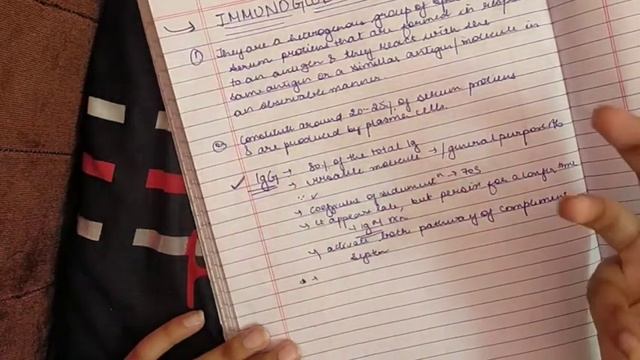 → IMMUNOGLO
① They are a heterogenous group of
serum proteins that are formed in resp
to an antigen & they react with the
same antigen or a similar antigen/molecule in
an observable manner.
② Constitute around 20-25% of serum proteins
& are produced by plasma cells.
✓ IgG → 80% of the total Ig
→ versatile molecule → /general purpose Ab
→ coefficient of sediment^n → 70S
→ it appears late, but persist for a longer time
→ IgM rxn
→ activate both pathway of complement
system